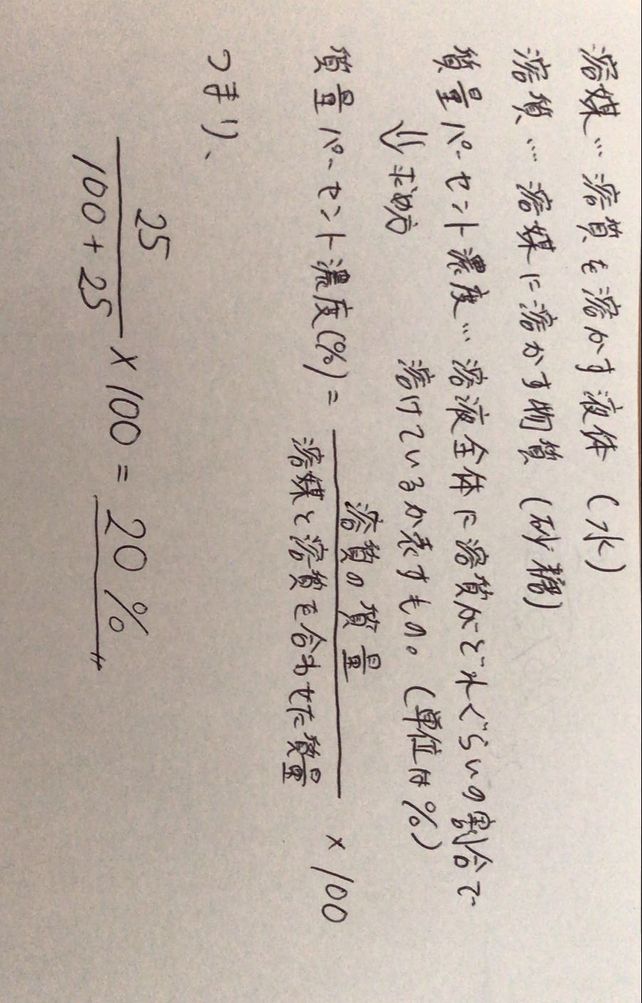 溶媒…溶質を溶かす液体(水)
溶質…溶媒に溶かす物質(砂糖)
質量パーセント濃度…溶液全体に溶質がどれぐらいの割合で
溶けているか表すもの。(単位は%)
↓求め方
質量パーセント濃度(%)=
溶質の質量
溶媒と溶質を合わせた質量
×100
つまり、
25
100+25
×100=20%